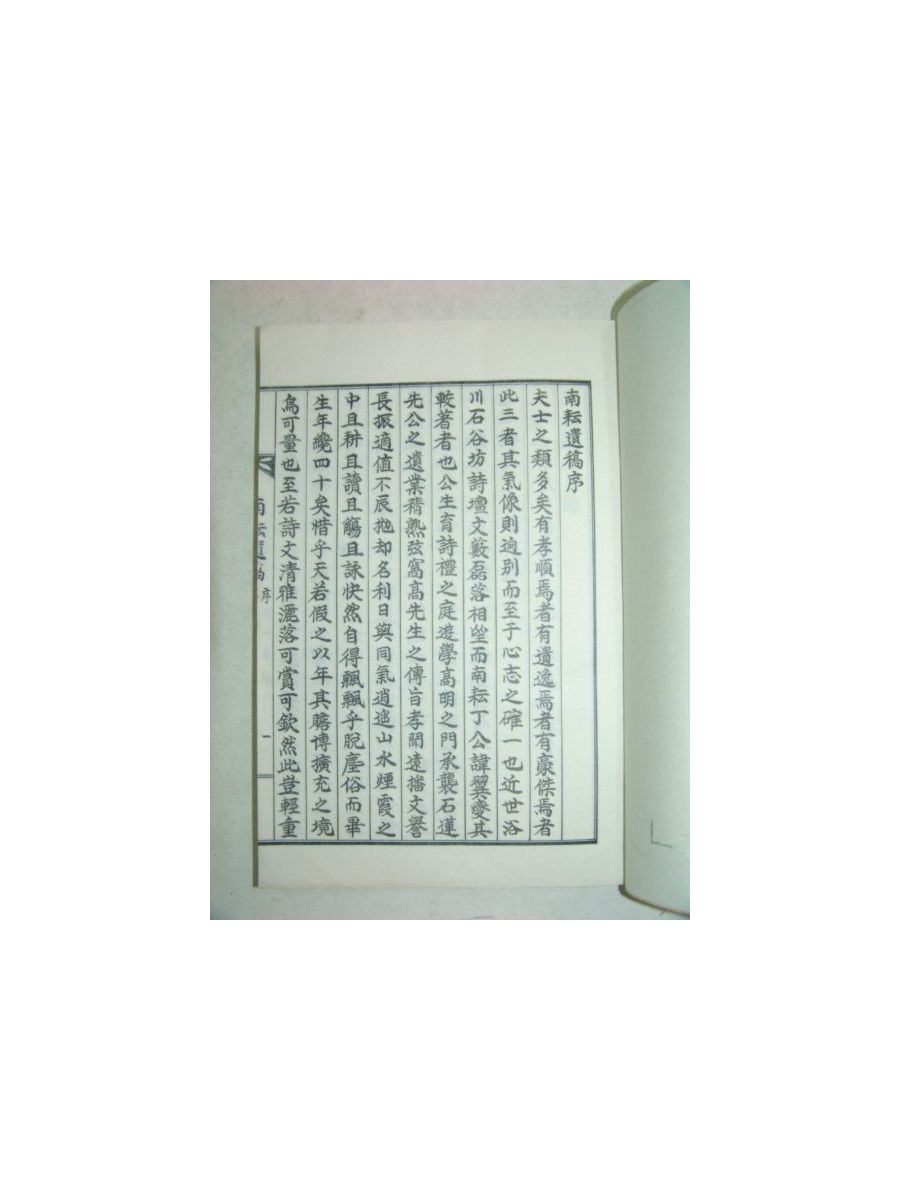 南耘遺稿序
夫士之類多矣有孝順焉者有遺逸焉者有豪傑焉者
此三者其氣像則逈別而至于心志之確一也近世浴
川石谷坊詩壇文藪磊落相望而南耘丁公諱翼燮其
較著者也公生育詩禮之庭遊學高明之門承襲石蓮
先公之遺業精熟弦窩高先生之傳旨孝聞遠播文譽
長振適値不辰抛却名利日與同氣逍遙山水煙霞之
中且耕且讀且觴且詠快然自得飄飄乎脫塵俗而畢
生年纔四十矣惜乎天若假之以年其贍博擴充之境
烏可量也至若詩文清雅灑落可賞可欽然此豈輕重
南耘遺稿 序 一